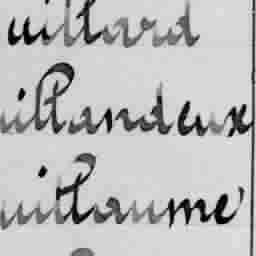 uillard
uillandeux
uillaume